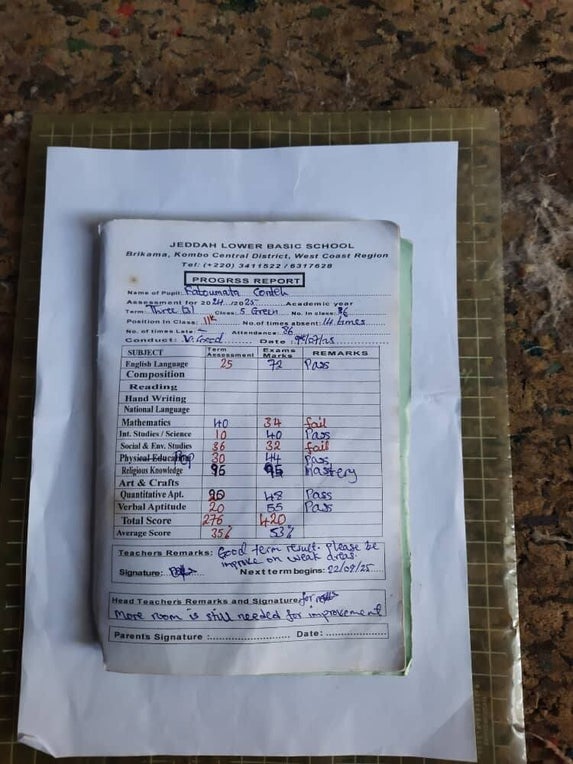 JEDDAH LOWER BASIC SCHOOL
Brikama, Kombo Central District, West Coast Region
Tel: (+220) 3411522 / 6317628
PROGRSS REPORT
Name of Pupil: Fatoumata Conteh
Assessment for 2024 /2025 Academic year
Term Three (3) Class: 5 Green No. in class: 86
Position in Class: 11th No. of times absent: 14 times
No. of times Late — Attendance: 86
Conduct: V. Good Date: /07/25
SUBJECT Term Assessment Exams Marks REMARKS
English Language 25 72 Pass
Composition
Reading
Hand Writing
National Language
Mathematics 40 34 fail
Int. Studies / Science 10 40 Pass
Social & Env. Studies 36 32 fail
Physical Education 30 44 Pass
Religious Knowledge 95 95 Mastery
Art & Crafts
Quantitative Apt. 20 48 Pass
Verbal Aptitude 20 55 Pass
Total Score 276 420
Average Score 35% 53%
Teachers Remarks: Good term result. Please be
improve on weak areas.
Signature: Next term begins: 22/09/25
Head Teachers Remarks and Signature for
More room is still needed for improvement
Parents Signature : Date: